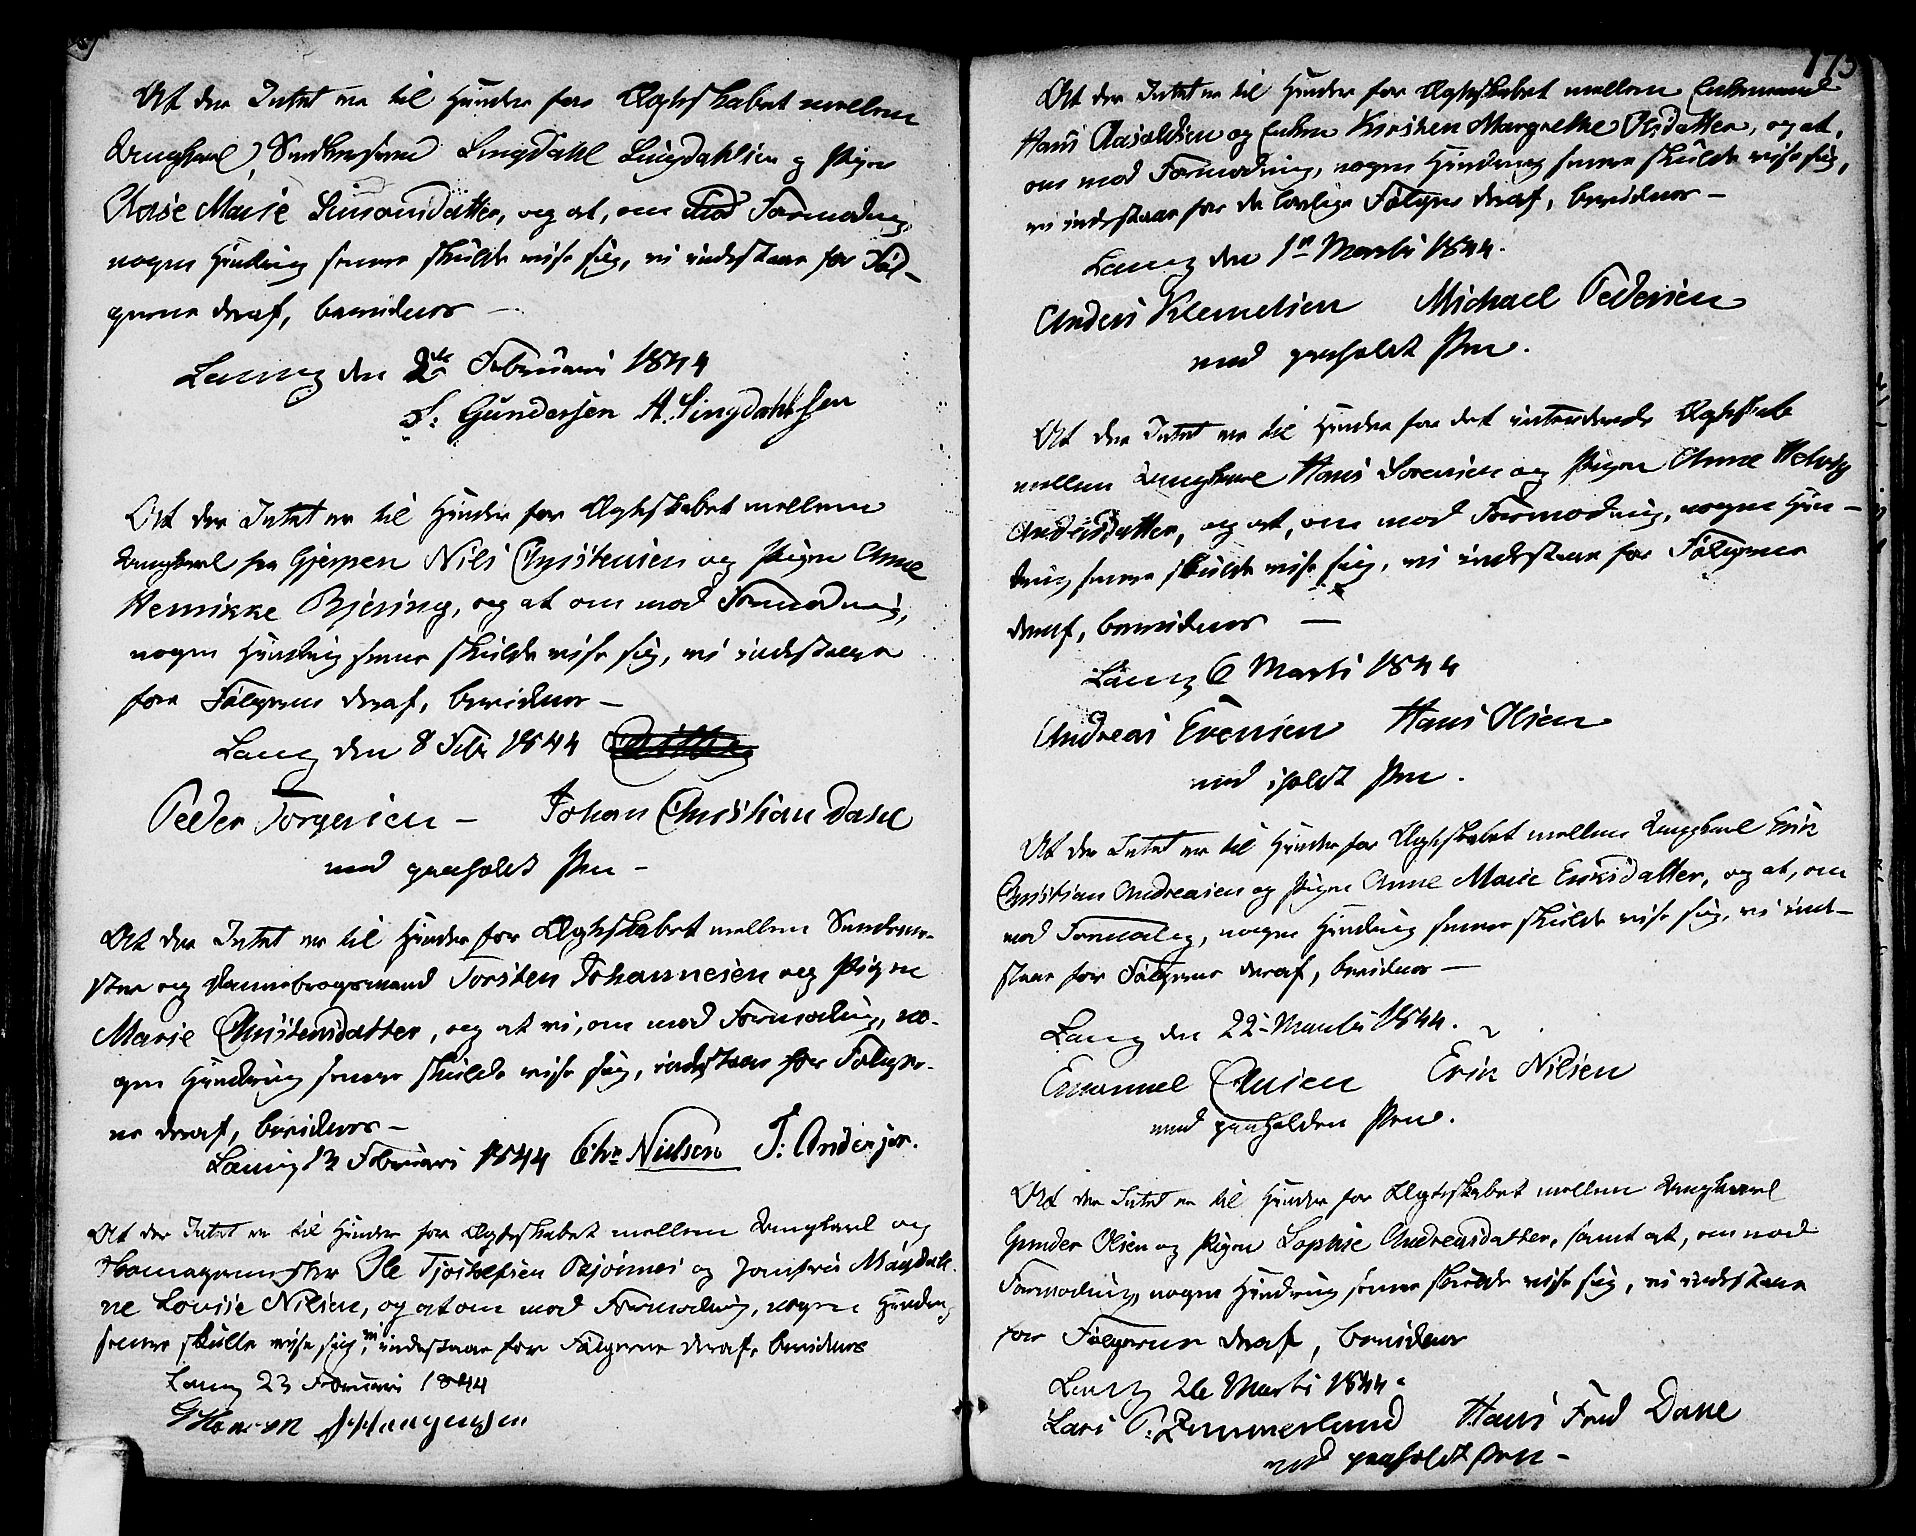 At der Intet er til Hinder for Ægteskabet mellem
Ungkarl, Snedkersvend Lingdahl Lingdahlsen og Pigen
Aase Marie Simonsdatter, og at, om mod Formodning,
nogen Hindring senere skulde vise sig, vi indestaae for Føl-
gerne deraf, bevidnes —
Laurvig den 2de Februari 1844
S: Gundersen A. Lingdahlssen
At der Intet er til Hinder for Ægteskabet mellem
Ungkarl fra Gjerpen Nils Christensen og Pigen Anne
Henrikke Bjering, og at om mod Formodning,
nogen Hindring senere skulde vise sig, vi indestaae
for Følgerne deraf, bevidnes —
Laurvig den 8 Febr 1844
Peder Torgersen — Johan Christian Dahl
med paaholdt Pen —
At der Intet er til Hinder for Ægteskabet mellem
ster og Dannebrogsmand Torsten Johannesen og Pigen
Marie Christensdatter, og at vi, om mod Formodning, no-
gen Hindring senere skulde vise sig, indestaae for Følger-
ne deraf, bevidnes —
Laurvig 13 Februari 1844 Chr. Nielsen J: Andersen.
At der Intet er til Hinder for Ægteskabet mellem Ungkarl og
Skomagermester Ole Tjostolfsen Bjønnes og Jomfru Magdale-
ne Lovise Nilsen, og at om mod Formodning, nogen Hindring
senere skulle vise sig, vi indestaae for Følgerne deraf, bevidnes
Laurvig 23 Februari 1844
175
At der Intet er til Hinder for Ægteskabet mellem Enkemand
Hans Aasoldsen og Enken Kirsten Margrethe Olsdatter, og at,
om mod Formodning, nogen Hindring senere skulde vise sig,
vi indestaae for de lovlige Følger deraf, bevidnes —
Laurvig den 1ste Martii 1844.
Anders Klemetsen Michael Pedersen
med paaholdt Pen.
At der Intet er til Hinder for det intenderede Ægteskab
mellem Ungkarl Hans Sørensen og Pigen Anne Helvig
Andersdatter, og at, om mod Formodning, nogen Hin-
dring senere skulde vise sig, vi indestaae for Følgerne
deraf, bevidnes —
Laurvig 6 Martii 1844
Andreas Evensen Hans Olsen
med iholdt Pen.
At der Intet er til Hinder for Ægteskabet mellem Ungkarl Erik
Christian Andreasen og Pigen Anne Marie Eriksdatter, og at, om
mod Formodning, nogen Hindring senere skulde vise sig, vi ind-
staae for Følgerne deraf, bevidnes —
Laurvig den 22 Martii 1844.
Emanuel Erik Nilsen
med paaholden Pen.
At der Intet er til Hinder for Ægteskabet mellem Ungkarl
Gunder Olsen og Pigen Sophie Andreasdatter, samt at, om mod
Formodning, nogen Hindring senere skulde vise sig, vi indestaae
for Følgerne deraf, bevidnes
Laurvig 26 Martii 1844.
Lars P. Zimmerlund Hans Fred Dahl
med paaholdt Pen —